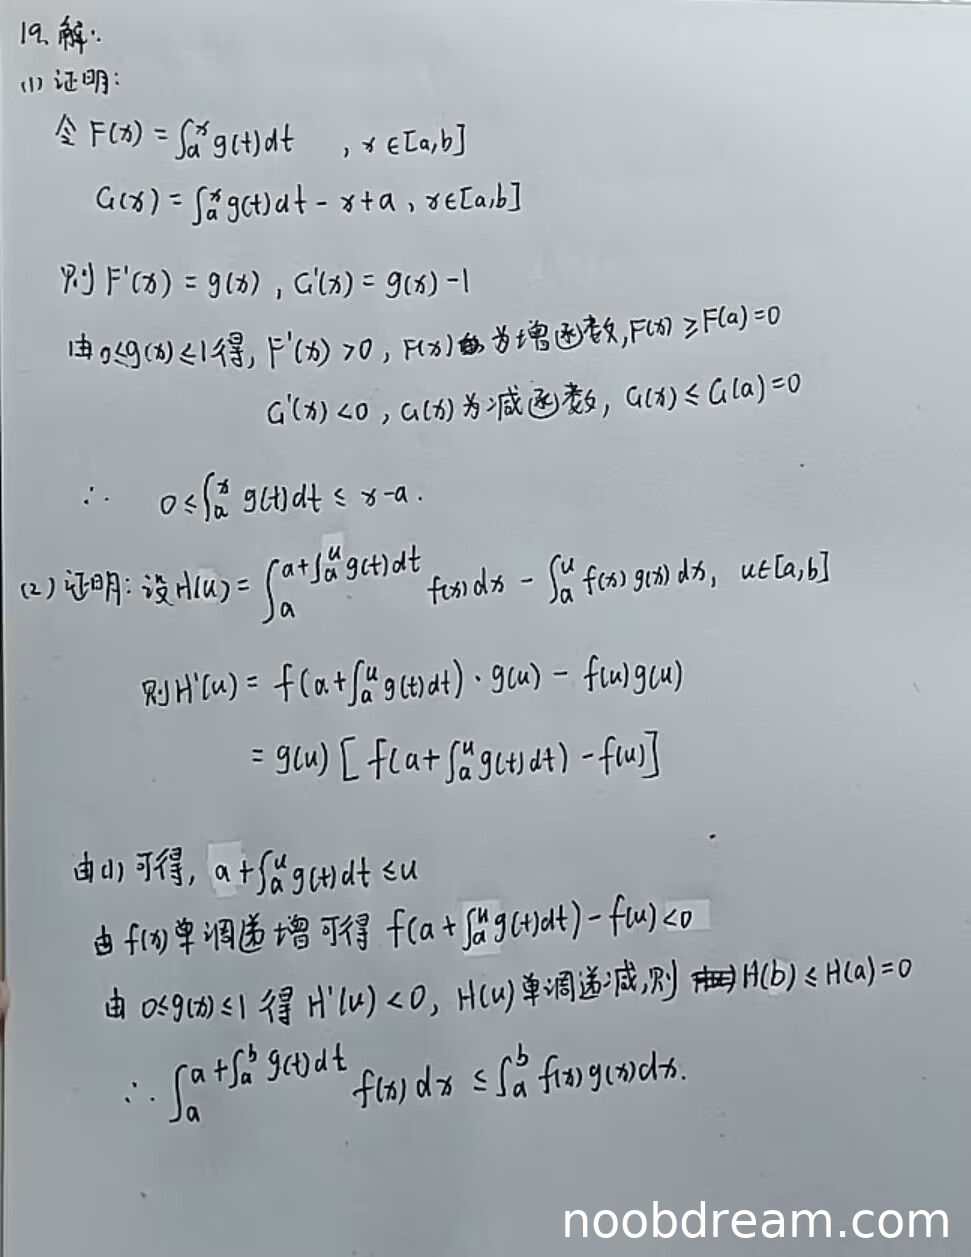 19、解:
(1) 证明:
令 F(x) = ∫ₐˣ g(t)dt , x∈[a,b]
G(x) = ∫ₐˣ g(t)dt - x+a , x∈[a,b]
则 F'(x) = g(x) , G'(x) = g(x) -1
由 0≤g(x)≤1得, F'(x) >0 , F(x) 为增函数, F(x) ≥F(a)=0
G'(x) <0 , G(x) 为减函数, G(x) ≤ G(a)=0
∴ 0≤∫ₐˣ g(t)dt ≤ x-a .
(2) 证明: 设H(u) = ∫_a^{a+∫_a^u g(t)dt} f(x) dx - ∫_a^u f(x) g(x) dx, u∈[a,b]
则H'(u) = f(a+∫_a^u g(t)dt) · g(u) - f(u)g(u)
= g(u) [ f(a+∫_a^u g(t)dt) -f(u)]
由(1) 可得, a+∫_a^u g(t)dt ≤u
由 f(x)单调递增可得 f(a+∫_a^u g(t)dt) -f(u) <0
由 0≤g(x)≤1 得 H'(u) <0, H(u)单调递减,则 H(b) ≤H(a)=0
∴ ∫_a^{a+∫_a^b g(t)dt} f(x) dx ≤∫_a^b f(x) g(x)dx.
noobdream.com